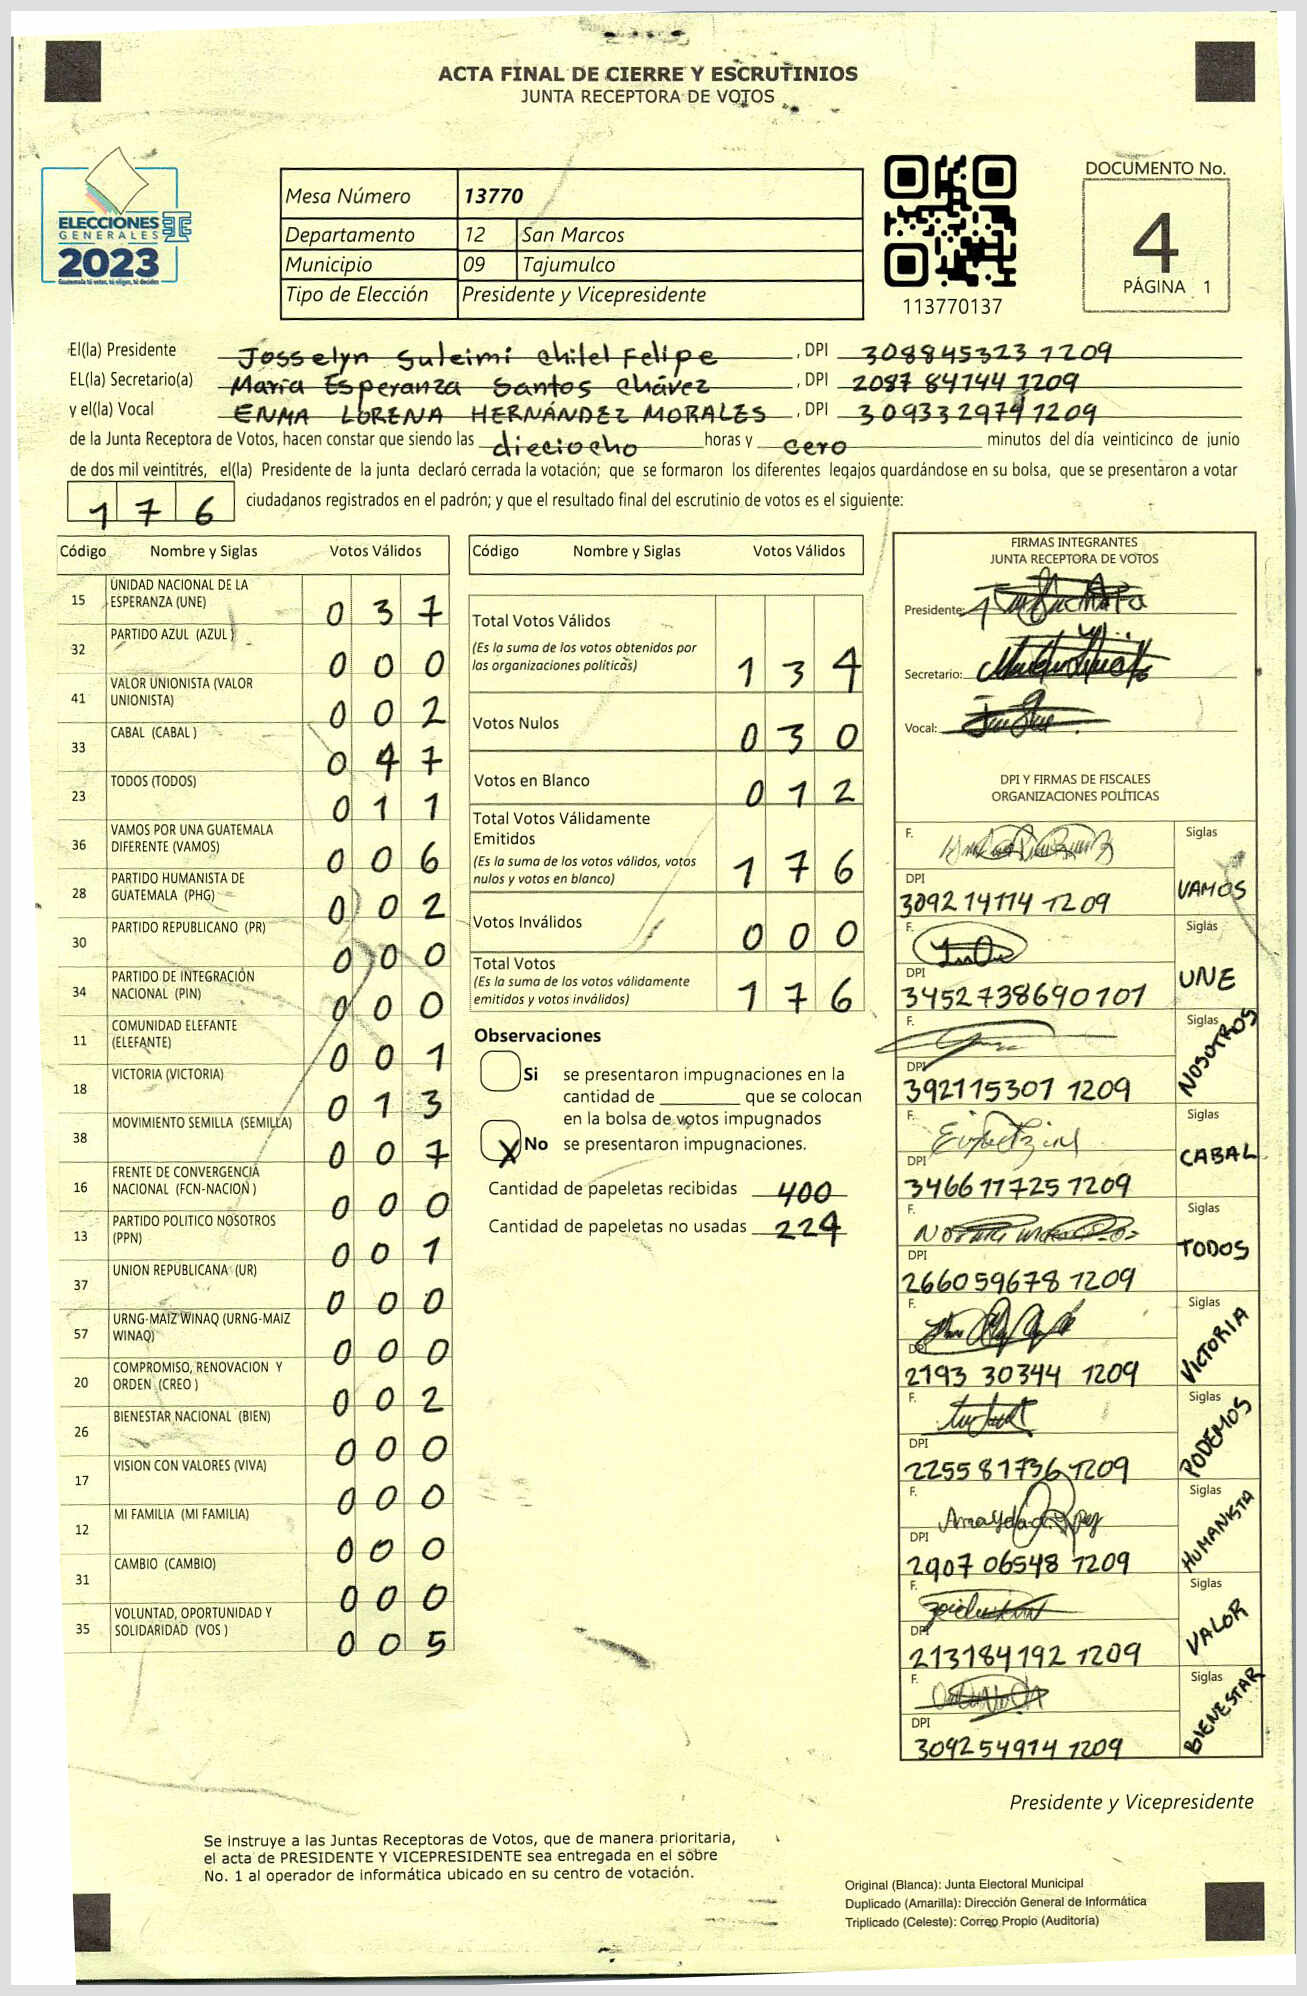 ACTA FINAL DE CIERRE Y ESCRUTINIOS
JUNTA RECEPTORA DE VOTOS
ELECCIONES
GENERALES
2023
Mesa Número 13770
Departamento 12 San Marcos
Municipio 09 Tajumulco
Tipo de Elección Presidente y Vicepresidente
113770137
DOCUMENTO No.
4
PÁGINA 1
El(la) Presidente Josselyn Suleimi Chilel Felipe, DPI 308845323 1209
EL(la) Secretario(a) María Esperanza Santos Chávez, DPI 2087 84144 1209
y el(la) Vocal ENMA LORENA HERNÁNDEZ MORALES, DPI 309332974 1209
de la Junta Receptora de Votos, hacen constar que siendo las dieciocho horas y cero minutos del día veinticinco de junio
de dos mil veintitrés, el(la) Presidente de la junta declaró cerrada la votación; que se formaron los diferentes legajos guardándose en su bolsa, que se presentaron a votar
176 ciudadanos registrados en el padrón; y que el resultado final del escrutinio de votos es el siguiente:
Código Nombre y Siglas Votos Válidos
15 UNIDAD NACIONAL DE LA ESPERANZA (UNE) 037
32 PARTIDO AZUL (AZUL) 000
41 VALOR UNIONISTA (VALOR UNIONISTA) 002
33 CABAL (CABAL ) 047
23 TODOS (TODOS) 011
36 VAMOS POR UNA GUATEMALA DIFERENTE (VAMOS) 006
28 PARTIDO HUMANISTA DE GUATEMALA (PHG) 002
30 PARTIDO REPUBLICANO (PR) 000
34 PARTIDO DE INTEGRACIÓN NACIONAL (PIN) 000
11 COMUNIDAD ELEFANTE (ELEFANTE) 001
18 VICTORIA (VICTORIA) 013
38 MOVIMIENTO SEMILLA (SEMILLA) 007
16 FRENTE DE CONVERGENCIA NACIONAL (FCN-NACION ) 000
13 PARTIDO POLITICO NOSOTROS (PPN) 001
37 UNION REPUBLICANA (UR) 000
57 URNG-MAIZ WINAQ (URNG-MAIZ WINAQ) 000
20 COMPROMISO, RENOVACION Y ORDEN (CREO ) 002
26 BIENESTAR NACIONAL (BIEN) 000
17 VISION CON VALORES (VIVA) 000
12 MI FAMILIA (MI FAMILIA) 000
31 CAMBIO (CAMBIO) 000
35 VOLUNTAD, OPORTUNIDAD Y SOLIDARIDAD (VOS ) 005
Código Nombre y Siglas Votos Válidos
Total Votos Válidos
(Es la suma de los votos obtenidos por
las organizaciones políticas) 134
Votos Nulos 030
Votos en Blanco 012
Total Votos Válidamente
Emitidos
(Es la suma de los votos válidos, votos
nulos y votos en blanco) 176
Votos Inválidos 000
Total Votos
(Es la suma de los votos válidamente
emitidos y votos inválidos) 176
Observaciones
Si se presentaron impugnaciones en la
cantidad de ________ que se colocan
en la bolsa de votos impugnados
X No se presentaron impugnaciones.
Cantidad de papeletas recibidas 400
Cantidad de papeletas no usadas 224
FIRMAS INTEGRANTES
JUNTA RECEPTORA DE VOTOS
Presidente:
Secretario:
Vocal:
DPI Y FIRMAS DE FISCALES
ORGANIZACIONES POLÍTICAS
F. Siglas
DPI 3092 14114 1209 VAMOS
F. Siglas
DPI 3452738690101 UNE
F. Siglas
DPI 392115307 1209 NOSOTROS
F. Siglas
DPI 3466117251209 CABAL
F. Siglas
DPI 266059678 1209 TODOS
F. Siglas
DPI 2193 30344 1209 VICTORIA
F. Siglas
DPI 225581736 1209 PODEMOS
F. Siglas
DPI 2907 06548 1209 HUMANISTA
F. Siglas
DPI 213184192 1209 VALOR
F. Siglas
DPI 309254914 1209 BIENESTAR
Presidente y Vicepresidente
Se instruye a las Juntas Receptoras de Votos, que de manera prioritaria,
el acta de PRESIDENTE Y VICEPRESIDENTE sea entregada en el sobre
No. 1 al operador de informática ubicado en su centro de votación.
Original (Blanca): Junta Electoral Municipal
Duplicado (Amarilla): Dirección General de Informática
Triplicado (Celeste): Correo Propio (Auditoría)